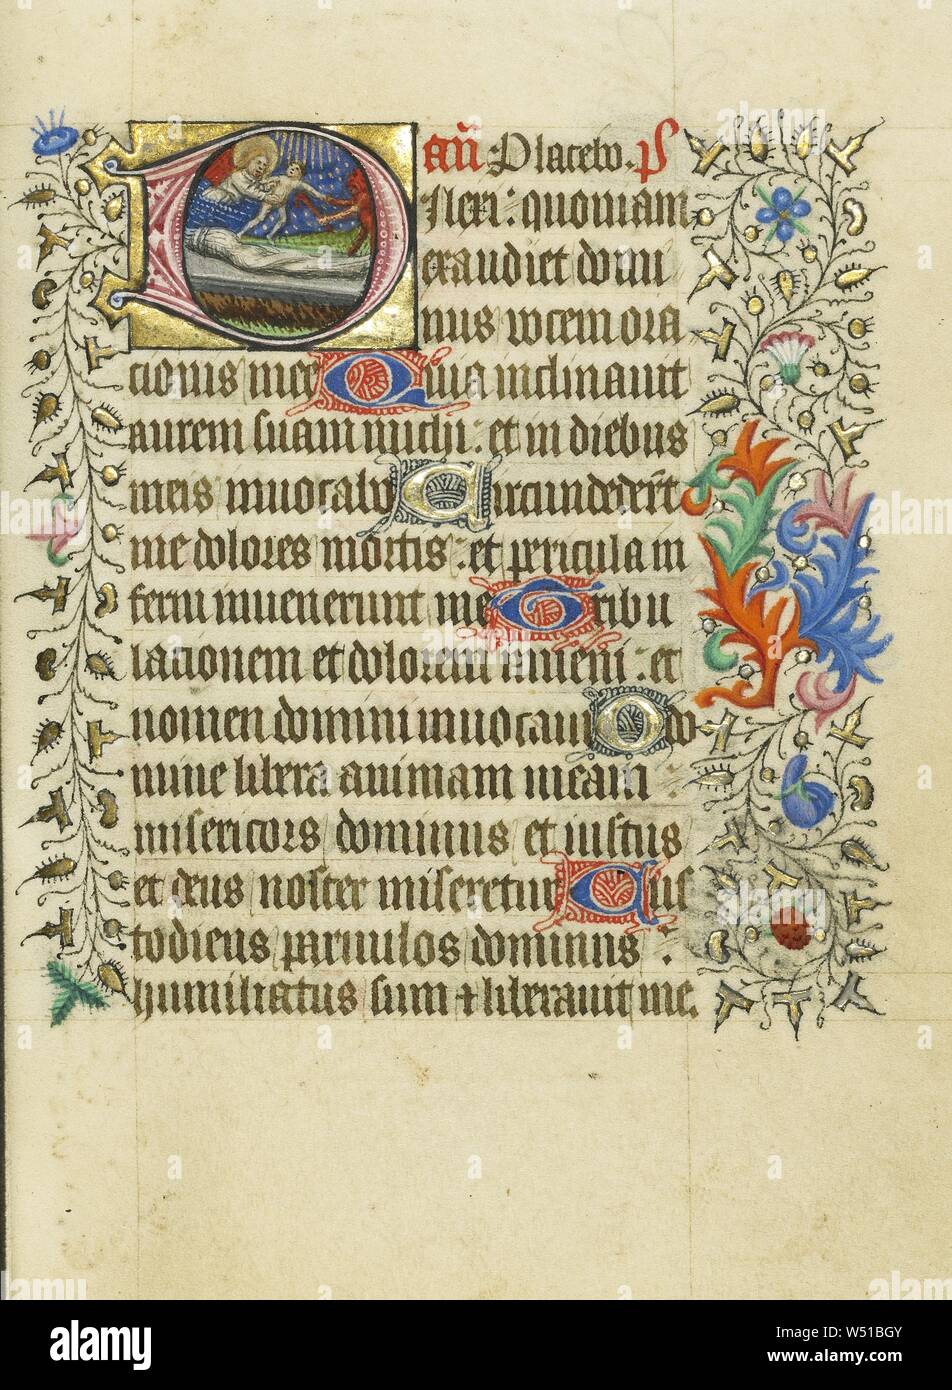 an̄ Placebo. ps
Dilexi: quoniam
exaudiet domi
nus vocem ora
cionis mee Quia inclinavit
aurem suam michi: et in diebus
meis invocabo Circundeder̄t
me dolores mortis: et pericula in
ferni invenerunt me Tribu
lacionem et dolorem inveni: et
nomen domini invocavi O do
mine libera animam meam:
misericors dominus et iustus
et deus noster miseretur Cus
todiens parvulos dominus:
humiliatus sum ⁊ liberavit me.
alamy
Image ID: W51BGY
www.alamy.com